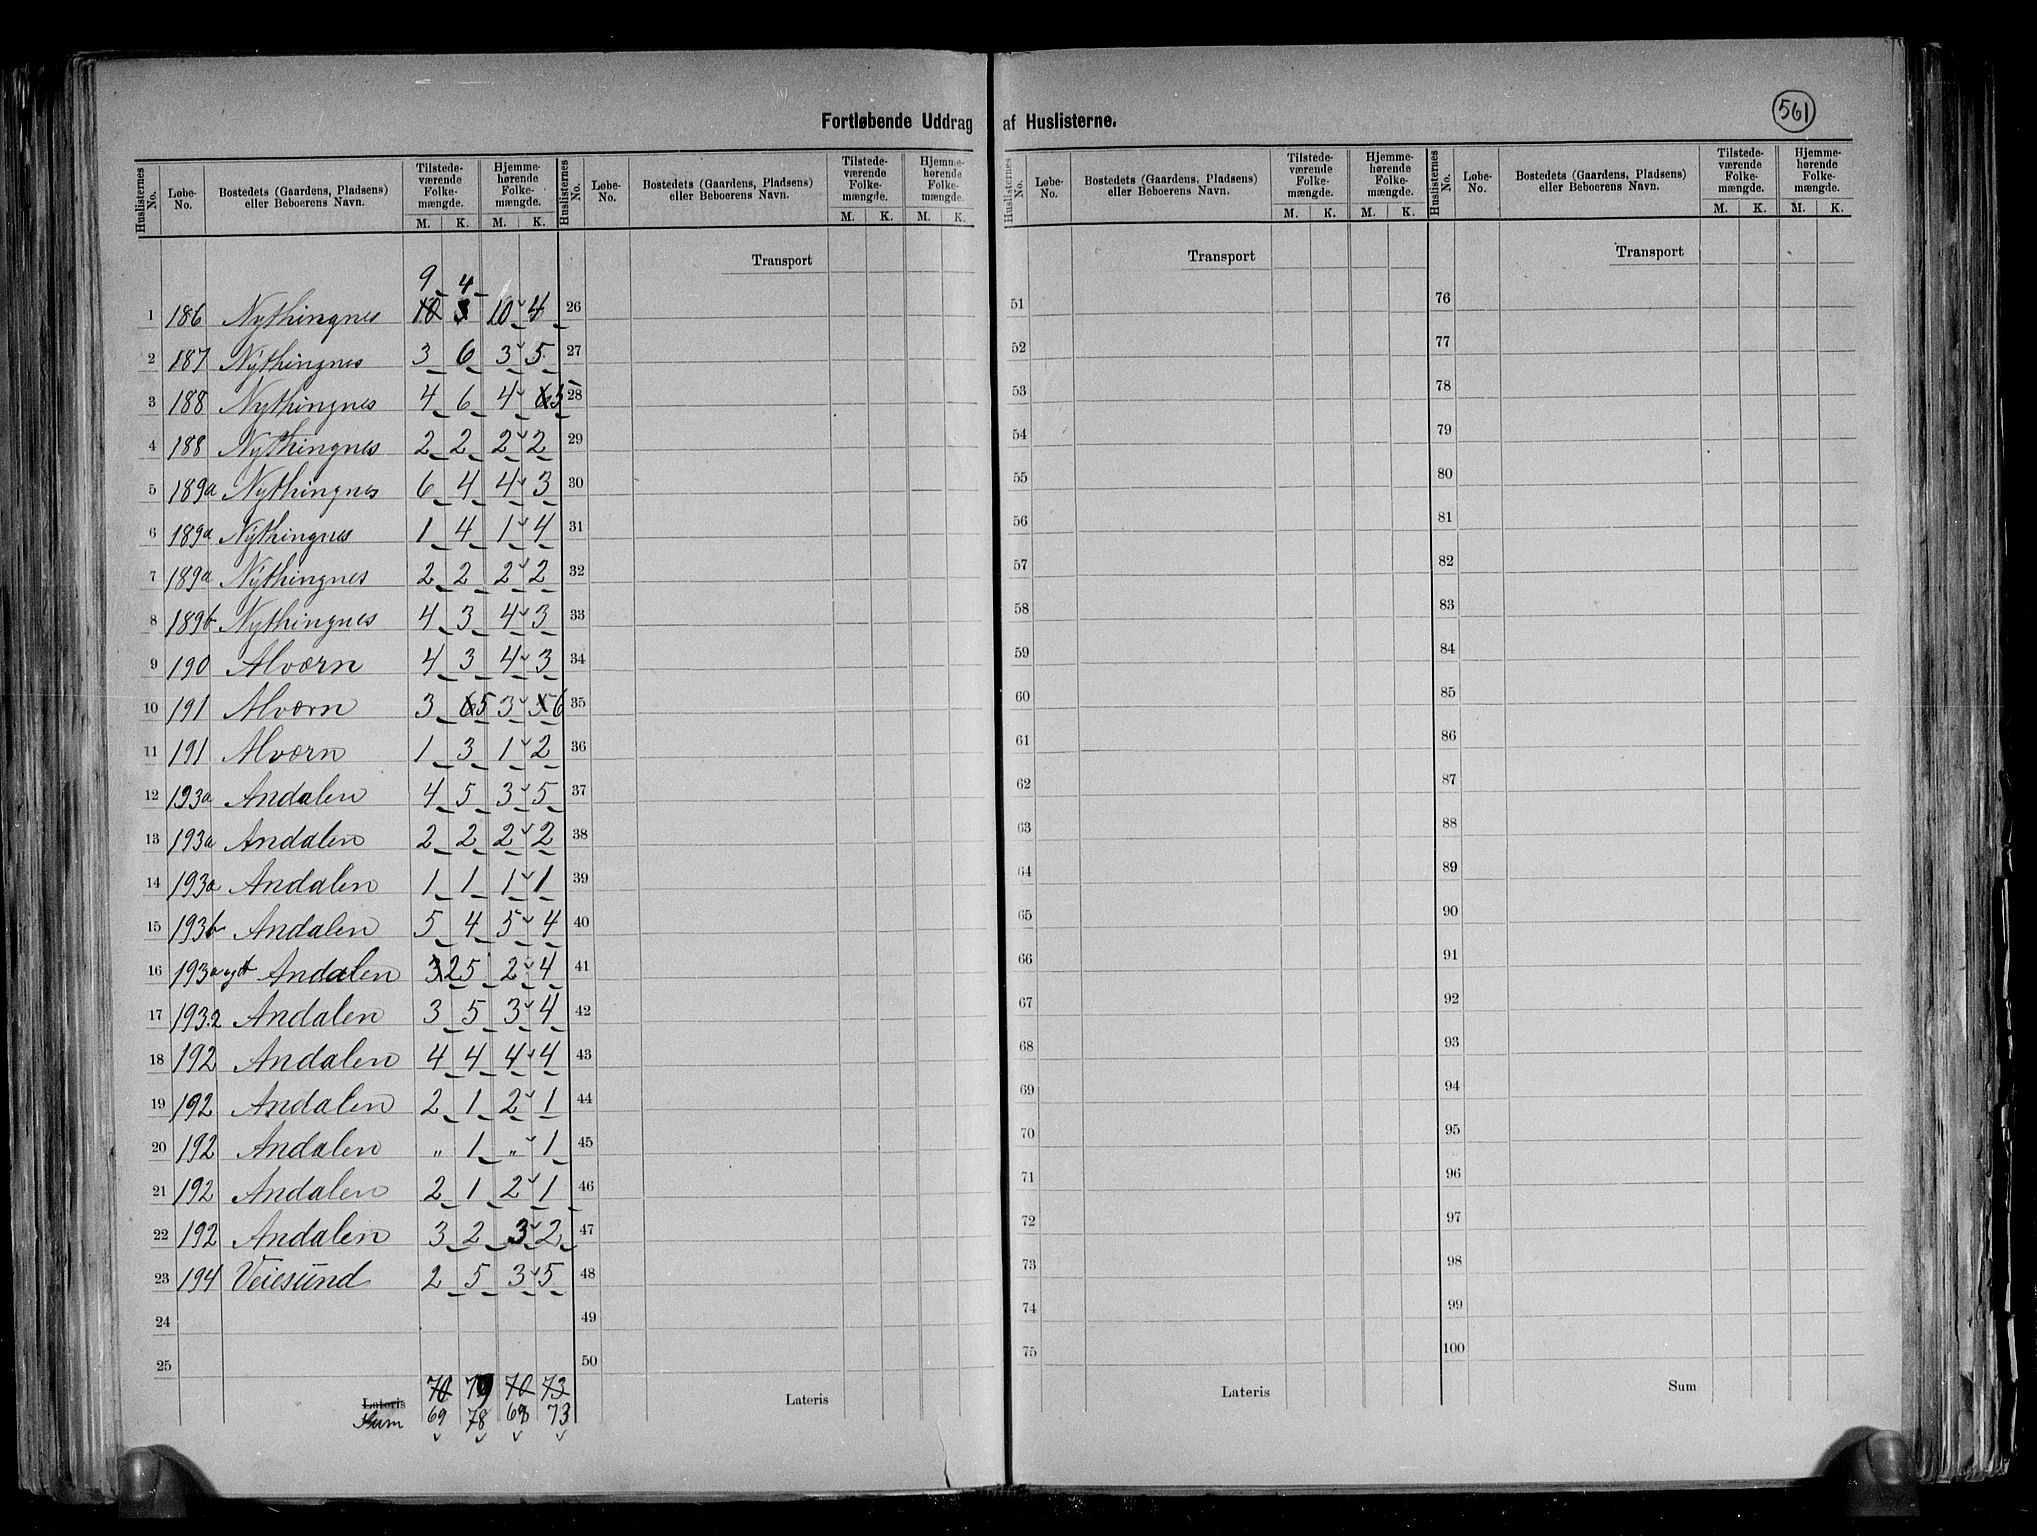 561
Fortløbende Uddrag af Huslisterne.
Huslisternes No. Løbe-No. Bostedets (Gaardens, Pladsens) eller Beboerens Navn. Tilstedeværende Folkemængde. M. K. Hjemmehørende Folkemængde. M. K.
Huslisternes No. Løbe-No. Bostedets (Gaardens, Pladsens) eller Beboerens Navn. Tilstedeværende Folkemængde. M. K. Hjemmehørende Folkemængde. M. K.
Huslisternes No. Løbe-No. Bostedets (Gaardens, Pladsens) eller Beboerens Navn. Tilstedeværende Folkemængde. M. K. Hjemmehørende Folkemængde. M. K.
Huslisternes No. Løbe-No. Bostedets (Gaardens, Pladsens) eller Beboerens Navn. Tilstedeværende Folkemængde. M. K. Hjemmehørende Folkemængde. M. K.
Transport Transport Transport
9 4
1 186 Nythingnes 10 3 10 4 26 51 76
2 187 Nythingnes 3 6 3 5 27 52 77
3 188 Nythingnes 4 6 4 6 5 28 53 78
4 188 Nythingnes 2 2 2 2 29 54 79
5 189a Nythingnes 6 4 4 3 30 55 80
6 189a Nythingnes 1 4 1 4 31 56 81
7 189a Nythingnes 2 2 2 2 32 57 82
8 189b Nythingnes 4 3 4 3 33 58 83
9 190 Alværn 4 3 4 3 34 59 84
10 191 Alværn 3 6 5 3 5 6 35 60 85
11 191 Alværn 1 3 1 2 36 61 86
12 193a Andalen 4 5 3 5 37 62 87
13 193a Andalen 2 2 2 2 38 63 88
14 193a Andalen 1 1 1 1 39 64 89
15 193b Andalen 5 4 5 4 40 65 90
16 193a og b Andalen 3 2 5 2 4 41 66 91
17 193.2 Andalen 3 5 3 4 42 67 92
18 192 Andalen 4 4 4 4 43 68 93
19 192 Andalen 2 1 2 1 44 69 94
20 192 Andalen " 1 " 1 45 70 95
21 192 Andalen 2 1 2 1 46 71 96
22 192 Andalen 3 2 3 2 47 72 97
23 194 Veiesund 2 5 3 5 48 73 98
24 49 74 99
25 50 75 100
Lateris 70 79 70 73 Lateris Lateris Sum
Sum 69 78 68 73